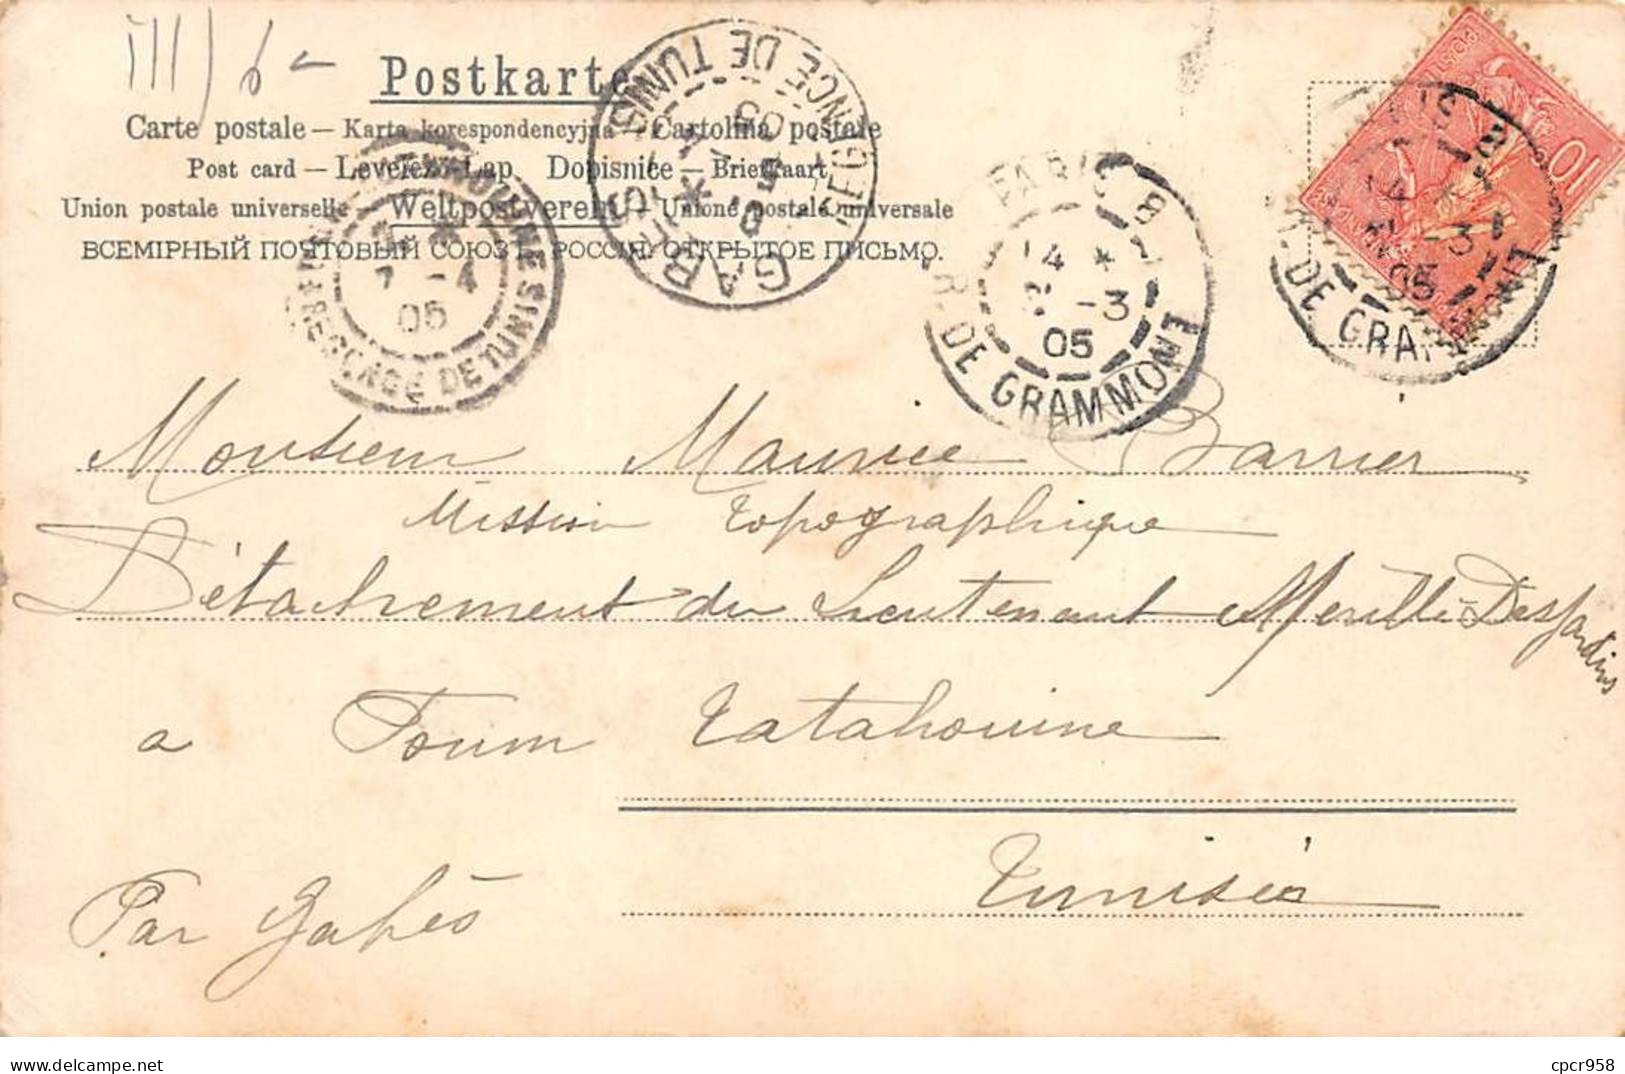 III) 6
Postkarte
Carte postale – Karta korespondencyjna – Cartolina postale
Post card – Levelező-Lap Dopisnice – Briefkaart
Union postale universelle Weltpostverein – Unione postale universale
ВСЕМІРНЫЙ ПОЧТОВЫЙ СОЮЗЪ РОССІЯ. ОТКРЫТОЕ ПИСЬМО.
GABES RÉGENCE DE TUNIS
RÉGENCE DE TUNIS
7 -4
05
PARIS 8
R. DE GRAMMONT
14 *
-3
05
POSTES
10
R. DE GRAMMONT
14
-3
05
Monsieur Maurice Barrier
Mission Topographique
Détachement du Lieutenant Merille-Desjardins
a Foum Tatahouine
Tunisie
Par Gabès
delcampe.net
cpcr958